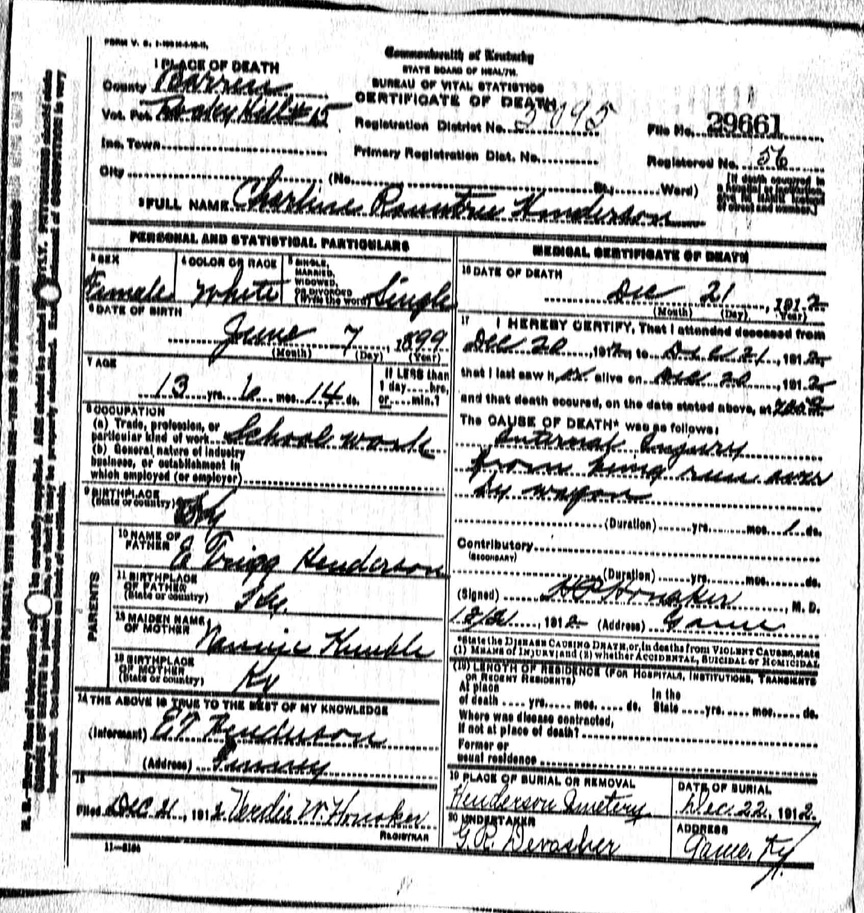 Commonwealth of Kentucky
STATE BOARD OF HEALTH.
BUREAU OF VITAL STATISTICS
CERTIFICATE OF DEATH
1 PLACE OF DEATH
County Barren
Vot. Pct. Rocky Hill # 15
Inc. Town
City (No. St., Ward)
Registration District No. 5095
Primary Registration Dist. No.
File No. 29661
Registered No. 56
2 FULL NAME Charline Rountree Henderson
PERSONAL AND STATISTICAL PARTICULARS
3 SEX Female
4 COLOR OR RACE White
5 SINGLE, MARRIED, WIDOWED, OR DIVORCED (Write the word) Single
6 DATE OF BIRTH
June 7, 1899
(Month) (Day) (Year)
7 AGE
13 yrs. 6 mos. 14 ds.
If LESS than
1 day... hrs.
or... min.?
8 OCCUPATION
(a) Trade, profession, or
particular kind of work School work
(b) General nature of industry
business, or establishment in
which employed (or employer)
9 BIRTHPLACE
(State or country) Ky
PARENTS
10 NAME OF
FATHER E Trigg Henderson
11 BIRTHPLACE
OF FATHER
(State or country) Ky
12 MAIDEN NAME
OF MOTHER Nannie Kimble
13 BIRTHPLACE
OF MOTHER
(State or country) Ky
14 THE ABOVE IS TRUE TO THE BEST OF MY KNOWLEDGE
(Informant) E T Henderson
(Address)
15
Filed Dec 21, 1912 Verdie W. Honaker
REGISTRAR
MEDICAL CERTIFICATE OF DEATH
16 DATE OF DEATH
Dec 21, 1912
(Month) (Day) (Year)
17 I HEREBY CERTIFY, That I attended deceased from
Dec 20 1912, to Dec 21, 1912
that I last saw her alive on Dec 20 1912
and that death occured, on the date stated above, at
The CAUSE OF DEATH* was as follows:
Internal Injury
from being run over
by wagon
(Duration) yrs. mos. 1 ds.
Contributory
(SECONDARY)
(Duration) yrs. mos. ds.
(Signed) Honaker M. D.
1912 (Address) Game
*State the DISEASE CAUSING DEATH, or, in deaths from VIOLENT CAUSES, state
(1) MEANS OF INJURY; and (2) whether ACCIDENTAL, SUICIDAL or HOMICIDAL
(18) LENGTH OF RESIDENCE (FOR HOSPITALS, INSTITUTIONS, TRANSIENTS
OR RECENT RESIDENTS)
At place of death yrs. mos. ds. In the State yrs. mos. ds.
Where was disease contracted,
If not at place of death?
Former or
usual residence
19 PLACE OF BURIAL OR REMOVAL
Henderson Cemetery
DATE OF BURIAL
Dec. 22, 1912.
20 UNDERTAKER
G. R. Devasher
ADDRESS
Game, Ky